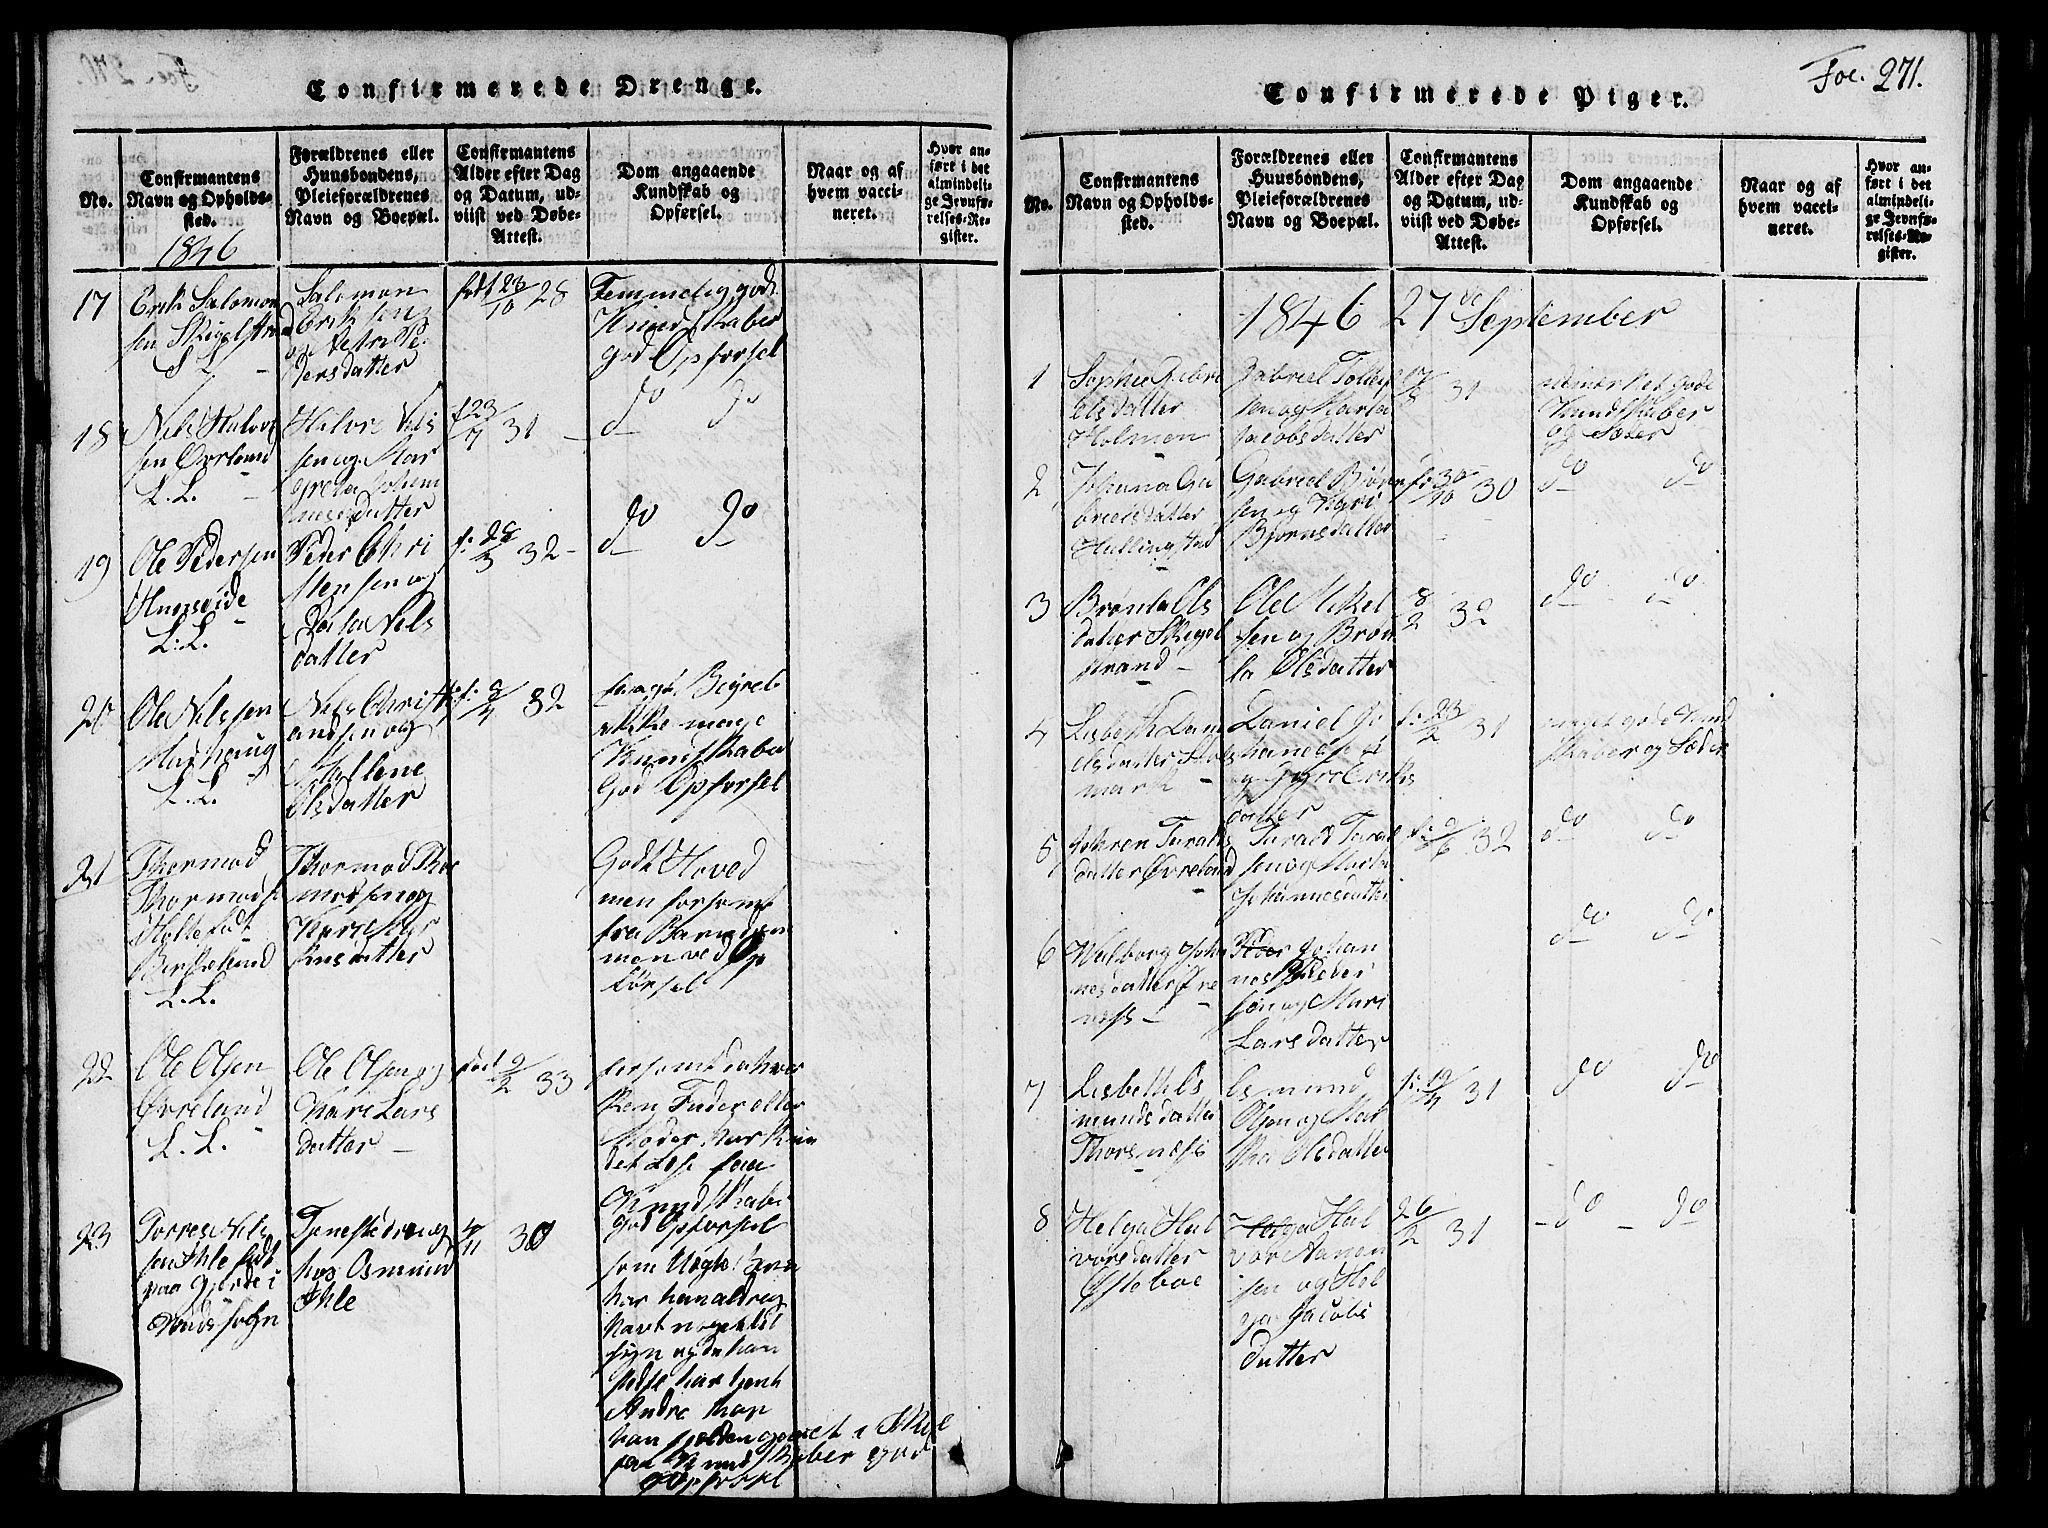 Confirmerede Drenge.
No.
Confirmantens
Navn og Opholds-
sted.
1846
Forældrenes eller
Huusbondens,
Pleieforældrenes
Navn og Boepæl.
Confirmantens
Alder efter Dag
og Datum, ud-
viist ved Døbe-
Attest.
Dom angaaende
Kundskab og
Opførsel.
Naar og af
hvem vacci-
neret.
Hvor an-
ført i det
almindeli-
ge Jevnfø-
relses-Re-
gister.
17
Erik Salomon
sen Skigelstrand
L L
Salomon
Eriksen
og Petri Pe-
dersdatter
født 23/10 28
Temmelig gode
Kundskaber
god Opførsel
18
Nels Halvor
sen Øvrland
L. L.
Halvre Nels
sen og Mar
greta Johan
nesdatter
f 23/7 31
do do
19
Ole Pedersen
L. L.
Peder Chri
stensen og
Nels
datter
f. 28/3 32
do do
20
Ole Nelssen
Marhaug
L. L.
Nels Christi
andsen og
Mallene
Olsdatter
f. 9/4 32
svagt Begreb
ikke mage
Kundskaber
God Opførsel
21
Thormod
Thormods
Holte født
Birkeland
L. L.
Thormod Thor
modsen og
Kari
datter
Godt Hoved
men forsømt
fra Barndom
men ved Op
førsel
22
Ole Olsen
Øvreland
L. L.
Ole Olsen og
Kari Lars
datter
født 9/2 33
forsømt da hver
ken Fader eller
Moder har kun
det Læse faa
Kundskaber
god Opførsel
23
Torres Nels
sen Ihle født
paa Gjerde i
sogn
Tjeneste dreng
hos Osmund
Ihle
4/11 30
som
har han aldrig
havt noget til
syn og da han
har tjent
Andre har
han sjelden gaaet i Skole
faa Kundskaber god
Opførsel
Confirmerede Piger.
Foe. 271.
No.
Confirmantens
Navn og Opholds-
sted.
Forældrenes eller
Huusbondens,
Pleieforældrenes
Navn og Boepæl.
Confirmantens
Alder efter Dag
og Datum, ud-
viist ved Døbe-
Attest.
Dom angaaende
Kundskab og
Opførsel.
Naar og af
hvem vacci-
neret.
Hvor an-
ført i det
almindeli-
ge Jevnfø-
relses-Re-
gister.
1846 27de September
1
Sophie Gabri
elsdatter
Holmen
Gabriel Tollefs
sen og Marta
Jacobsdatter
17/8 31
udmærket gode
Kundskaber
og Sæder
2
Johana Ga
brielsdatter
Hallingstad
Gabriel Bjørn
sen og Kari
Bjørnsdatter
f. 30/10 30
do do
3
Brønla Ols
datter Skigel
strand
Ole Mikel
sen og Brøn
la Olsdatter
8/2 32
do do
4
Lisbeth Dani
elsdatter
mark
Daniel Jo
hanesse
og Gyri Eriks
datter
f. 23/2 31
meget gode Kund
skaber og Sæder
5
Johren Taralds
datter Øvreland
Tarald Taral
sen og Marta
Johannesdatter
f. 2/6 32
do do
6
Walborg Johan
nesdatter Fre
næss
Johan
nes Peder
sen og Mari
Larsdatter
do do
7
Lisbeth Os
mundsdatter
Thorsnæss
Osmund
Olsen og Mar
tha Olsdatter
f. 19/4 31
do do
8
Helga Hal
vorsdatter
Østeboe
Hal
vor Aanon
sen og Hel
ga Jacobs
datter
26/2 31
do do